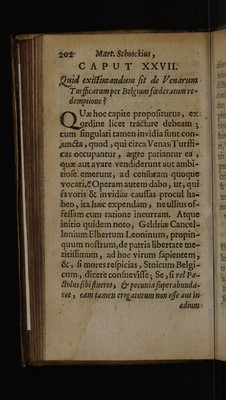 202 Mart. Schoockius,
CAPUT XXVII.
Quid existimandum sit de Venarum
Turfficarum per Belgium fœderatum re-
demptione?
QUæ hoc capite propositurus, ex-
ordine licet tractare debeam;
cum singulari tamen invidia sunt con-
juncta, quod, qui circa Venas Turffi-
cas occupantur, ægre patiantur ea,
quæ aut avare vendiderunt aut ambi-
tiose emerunt, ad censuram quoque
vocati. Operam autem dabo, ut, qui
favoris & invidiæ caussas procul ha-
beo, ita hæc expendam, ne ullius of-
fessam cum ratione incurram. Atque
initio quidem noto, Geldriæ Cancel-
lonium Elbertum Leoninum, propin-
quum nostrum, de patria libertate me-
ritissimum, ad hoc virum sapientem,
&, si mores respicias, Stoicum Belgi-
cum, dicere consuevisse; Se, si vel Pa-
ctolus sibi flueret, & pecunia superabunda-
ret, eam tamen erogaturum non esse aut in
ædium